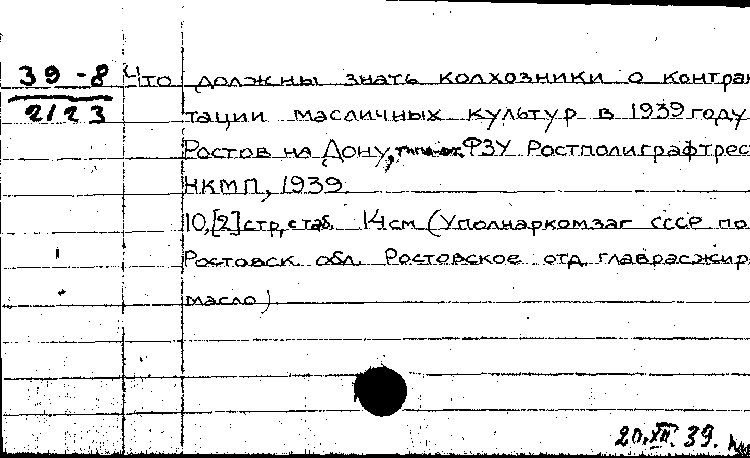 39-8
2123
Что должны знать колхозники о контрак
тации масличных культур в 1939 году
Ростов на Дону, тип-я ФЗУ Ростполиграфтрес
НКМП, 1939.
10,[2] стр, с таб. 14 см (Уполнаркомзаг СССР по
Ростовск. обл. Ростовское отд. главрасжир
масло)
20.XII.39.